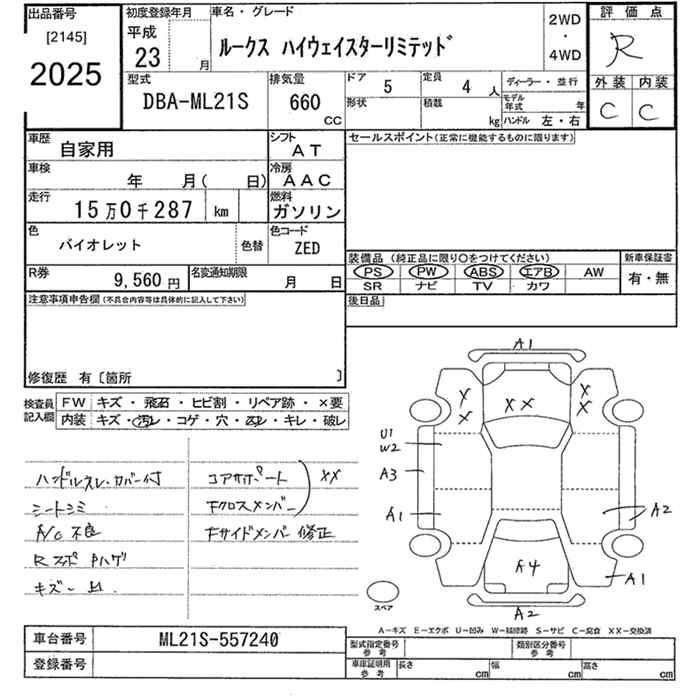 出品番号
[2145]
2025
初度登録年月
平成
23 月
車名・グレード
ルークス ハイウェイスターリミテッド
2WD
・
4WD
評価点
R
外装 内装
C C
型式
DBA-ML21S
排気量
660
CC
ドア 5
定員 4 人
形状
積載 kg
ディーラー・並行
モデル年式 年
ハンドル 左・右
車歴 自家用
シフト AT
車検 年 月( 日)
冷房 AAC
走行 15万0千287 km
燃料 ガソリン
色 バイオレット 色替
色コード ZED
R券 9,560 円
名変通知期限 月 日
セールスポイント(正常に機能するものに限ります)
装備品 (純正品に限り○をつけてください)
新車保証書
PS PW ABS エアB AW
SR ナビ TV カワ
有・無
後日品
注意事項申告欄(不具合内容等は具体的に記入して下さい)
修復歴 有〔箇所 〕
検査員記入欄
FW キズ・飛石・ヒビ割・リペア跡・×要
内装 キズ・汚レ・コゲ・穴・ ・キレ・破レ
ハンドルスレ・カバー付
シートシミ
A/C 不良
Rスポ Pハゲ
キズ
コアサポート XX
Fクロスメンバー
Fサイドメンバー 修正
A1
X X
X X
X X
U1
W2
A3
A1
A2
A4
A1
A2
スペア
A－キズ E－エクボ U－凹み W－補修跡 S－サビ C－腐食 XX－交換済
車台番号 ML21S-557240
登録番号
型式指定番号 参考
類別区分番号 参考
車庫証明用 参考
長さ cm
幅 cm
高さ cm